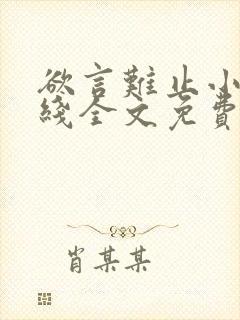 欲言難止小
綫全文免費
肖某某